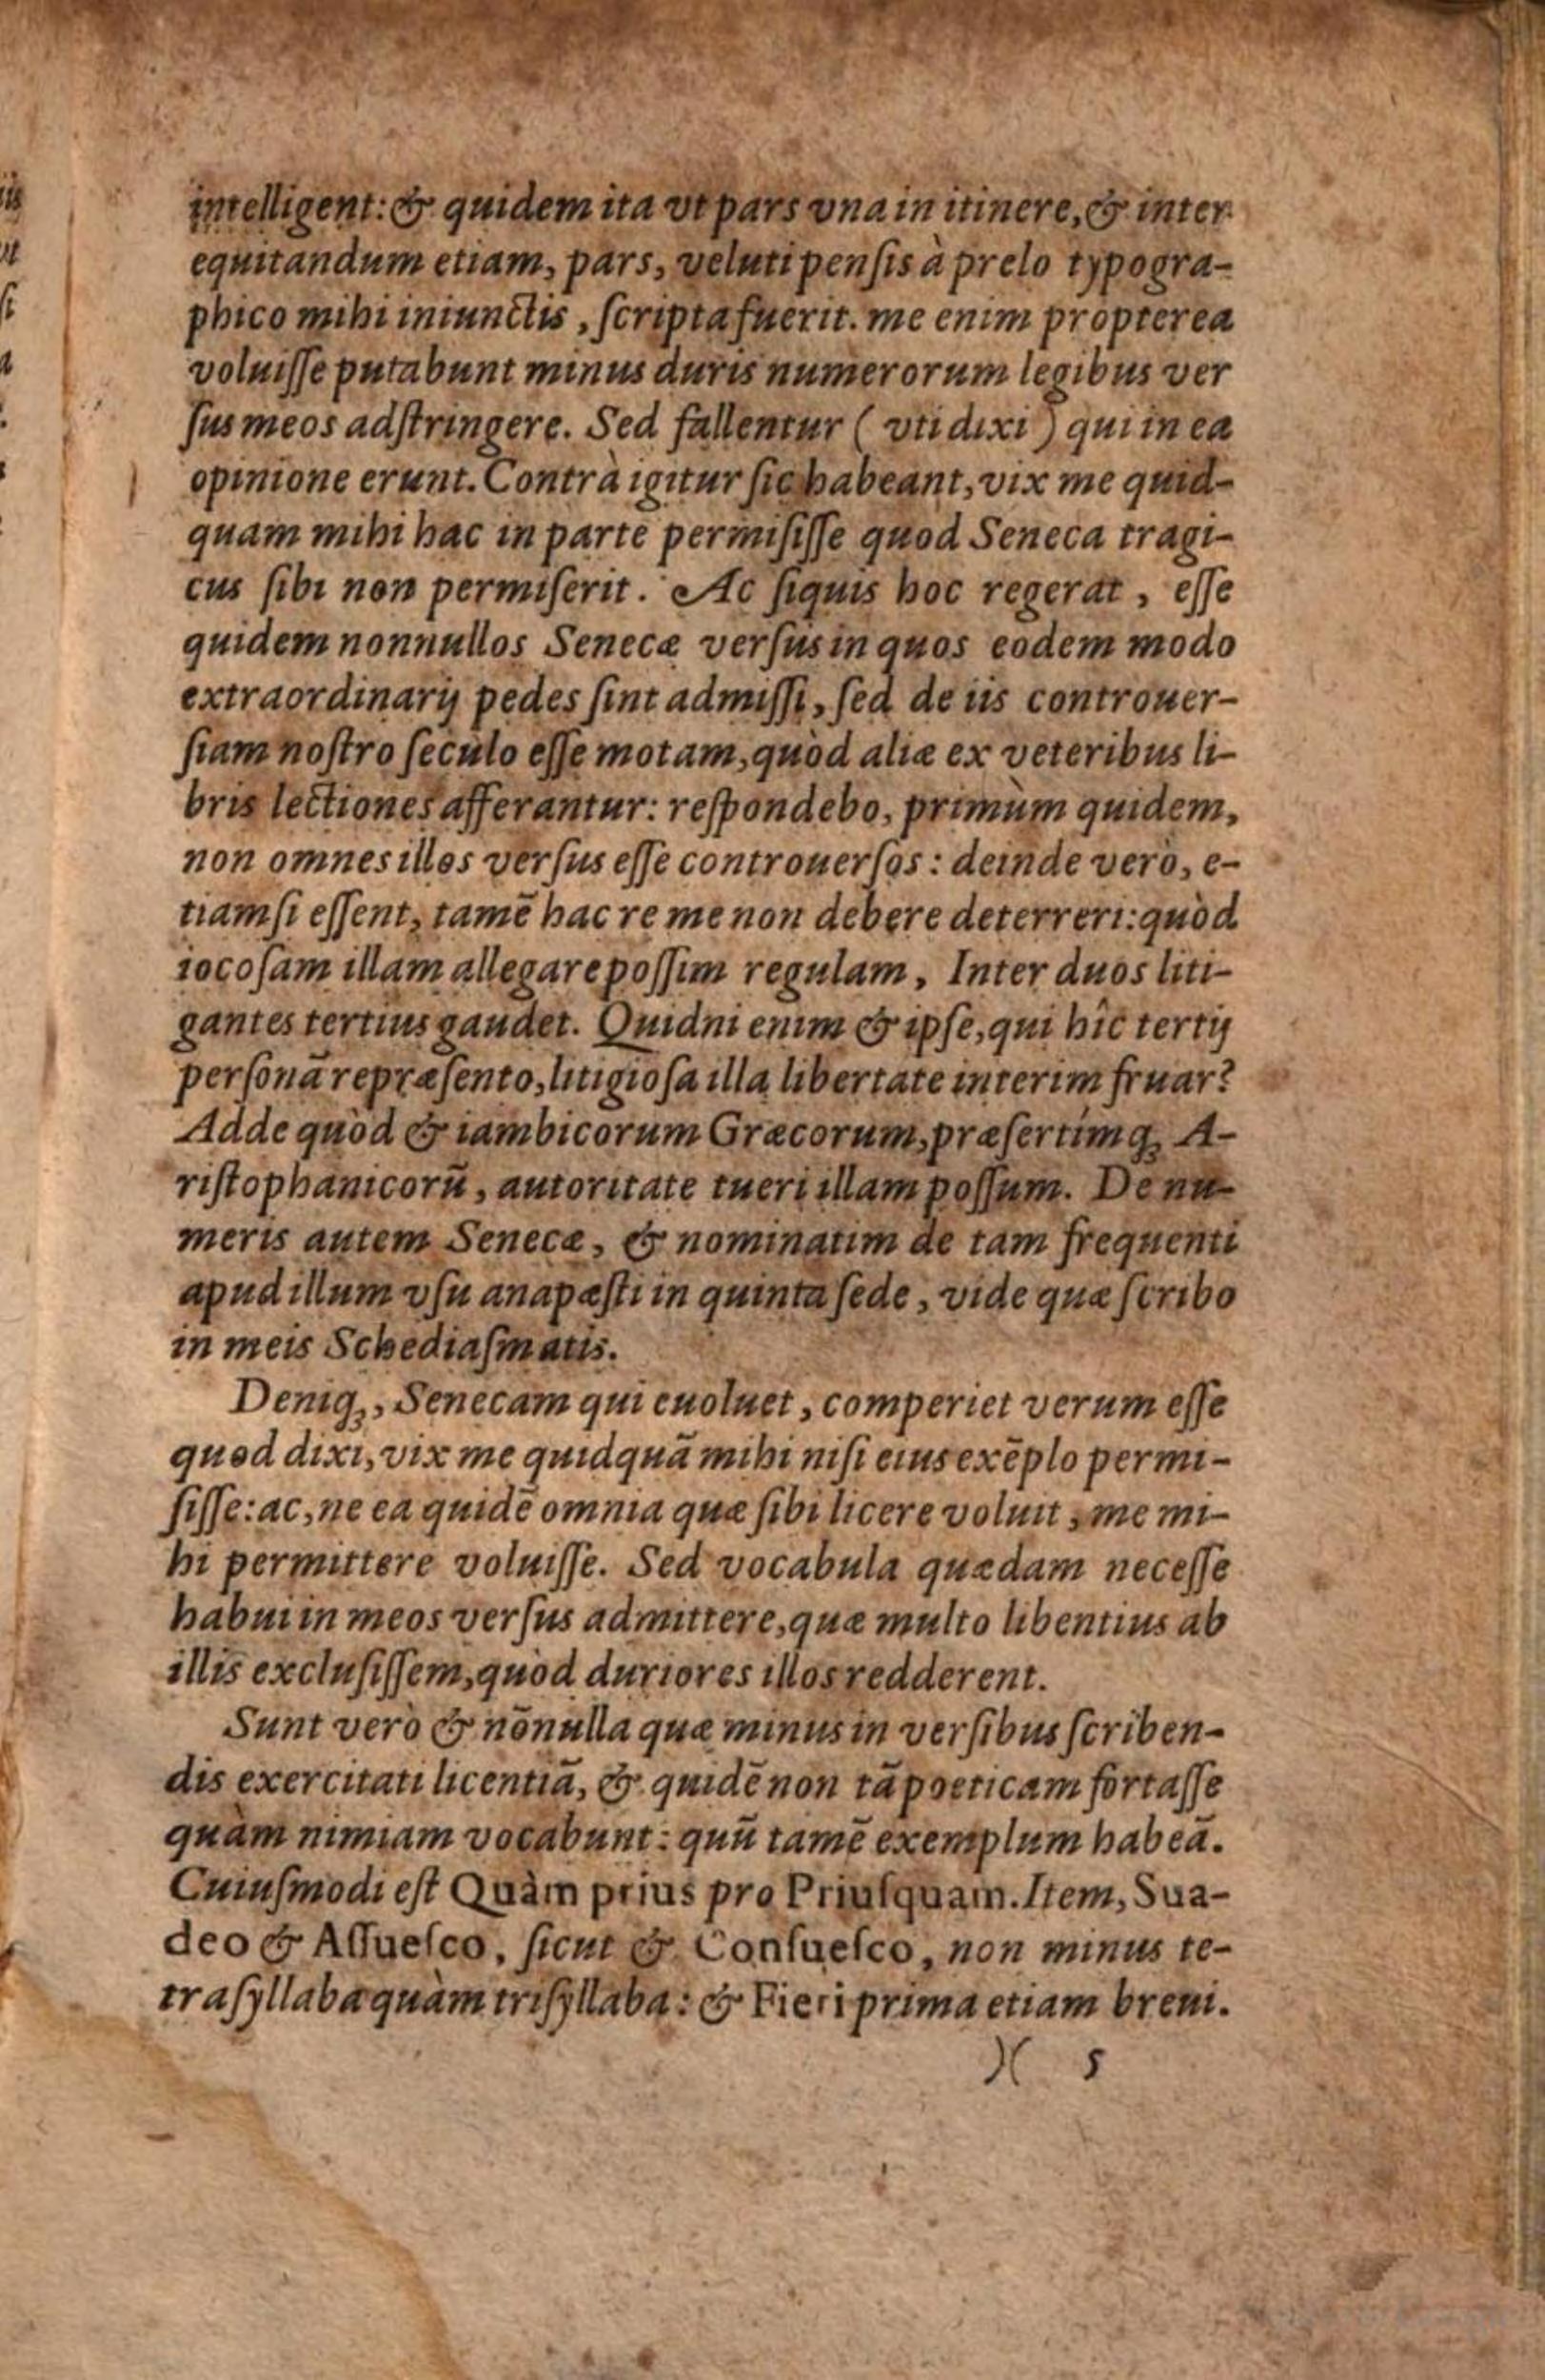 intelligent: & quidem ita vt pars vna in itinere, & inter
equitandum etiam, pars, veluti penſis à prelo typogra-
phico mihi iniunctis, ſcripta fuerit. me enim propterea
voluiſſe putabunt minus duris numerorum legibus ver
ſus meos adſtringere. Sed fallentur ( vti dixi ) qui in ea
opinione erunt. Contrà igitur ſic habeant, vix me quid-
quam mihi hac in parte permiſiſſe quod Seneca tragi-
cus ſibi non permiſerit. Ac ſiquis hoc regerat, eſſe
quidem nonnullos Senecæ verſus in quos eodem modo
extraordinarij pedes ſint admiſſi, ſed de iis controuer-
ſiam noſtro ſeculo eſſe motam, quòd aliæ ex veteribus li-
bris lectiones afferantur: reſpondebo, primùm quidem,
non omnes illos verſus eſſe controuerſos: deinde verò, e-
tiamſi eſſent, tamē hac re me non debere deterreri: quòd
iocoſam illam allegare poſſim regulam, Inter duos liti-
gantes tertius gaudet. Quidni enim & ipſe, qui hîc tertij
perſonā repræſento, litigioſa illa libertate interim fruar?
Adde quòd & iambicorum Græcorum, præſertímq; A-
riſtophanicorū, autoritate tueri illam poſſum. De nu-
meris autem Senecæ, & nominatim de tam frequenti
apud illum vſu anapæſti in quinta ſede, vide quæ ſcribo
in meis Schediaſmatis.
Deniq;, Senecam qui euoluet, comperiet verum eſſe
quod dixi, vix me quidquā mihi niſi eius exēplo permi-
ſiſſe: ac, ne ea quidē omnia quæ ſibi licere voluit, me mi-
hi permittere voluiſſe. Sed vocabula quædam neceſſe
habui in meos verſus admittere, quæ multo libentius ab
illis excluſiſſem, quòd duriores illos redderent.
Sunt verò & nōnulla quæ minus in verſibus ſcriben-
dis exercitati licentiā, & quidē non tā poeticam fortaſſe
quàm nimiam vocabunt: quū tamē exemplum habeā.
Cuiuſmodi eſt Quàm prius pro Priuſquam. Item, Sua-
deo & Aſſueſco, ſicut & Conſueſco, non minus te-
traſyllaba quàm triſyllaba: & Fieri prima etiam breui.
)( 5